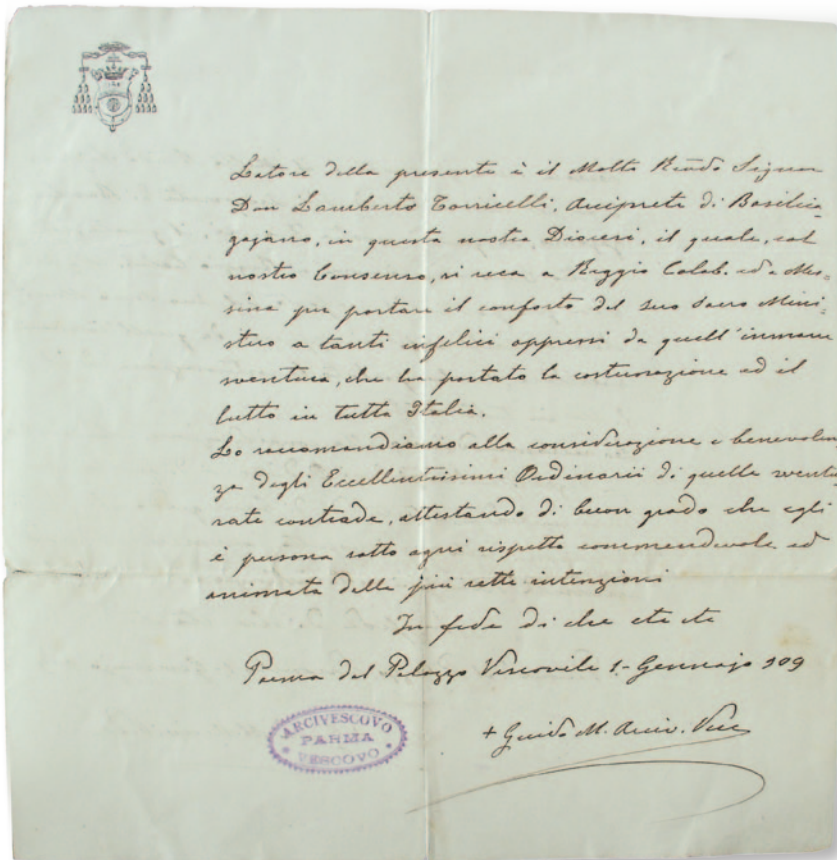 Latore della presente è il Molto Reṽdo Signor
Don Lamberto Torricelli, Arciprete di Basilica-
gojano, in questa nostra Diocesi, il quale, col
nostro Consenso, si reca a Reggio Calab. ed a Mes=
sina per portare il conforto del suo Sacro Mini=
stero a tanti infelici oppressi da quell'immane
sventura, che ha portato la costernazione ed il
lutto in tutta Italia.
Lo raccomandiamo alla considerazione e benevolen
za degli Eccellentissimi Ordinarii di quelle sventu
rate contrade, attestando di buon grado che egli
è persona sotto ogni rispetto commendevole ed
animata dalle più rette intenzioni
In fede di che etc etc
Parma dal Palazzo Vescovile 1- Gennajo 909
+ Guido M. Arciv. Vesc
ARCIVESCOVO
PARMA
VESCOVO